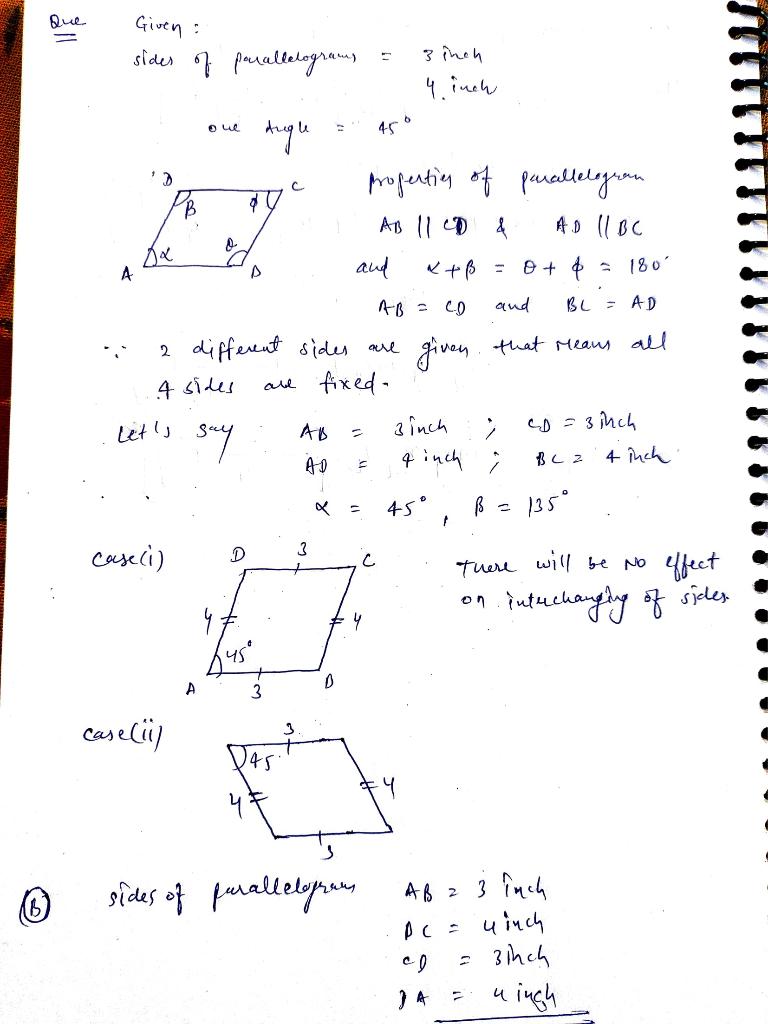 Que Given :
sides of parallelograms = 3 inch
4 inch
one Angle = 45°
D C
β φ
α θ
A B
properties of parallelogram
AB || CD & AD || BC
and α+β = θ+φ = 180°
AB = CD and BC = AD
∵ 2 different sides are given that means all
4 sides are fixed.
Let's say AB = 3 inch ; CD = 3 inch
AD = 4 inch ; BC = 4 inch
α = 45°, β = 135°
case(i)
D 3 C
4 4
45°
A 3 B
There will be NO effect
on interchanging of sides.
case(ii)
3
45
4 4
3
(B) sides of parallelograms AB = 3 inch
BC = 4 inch
CD = 3 inch
DA = 4 inch